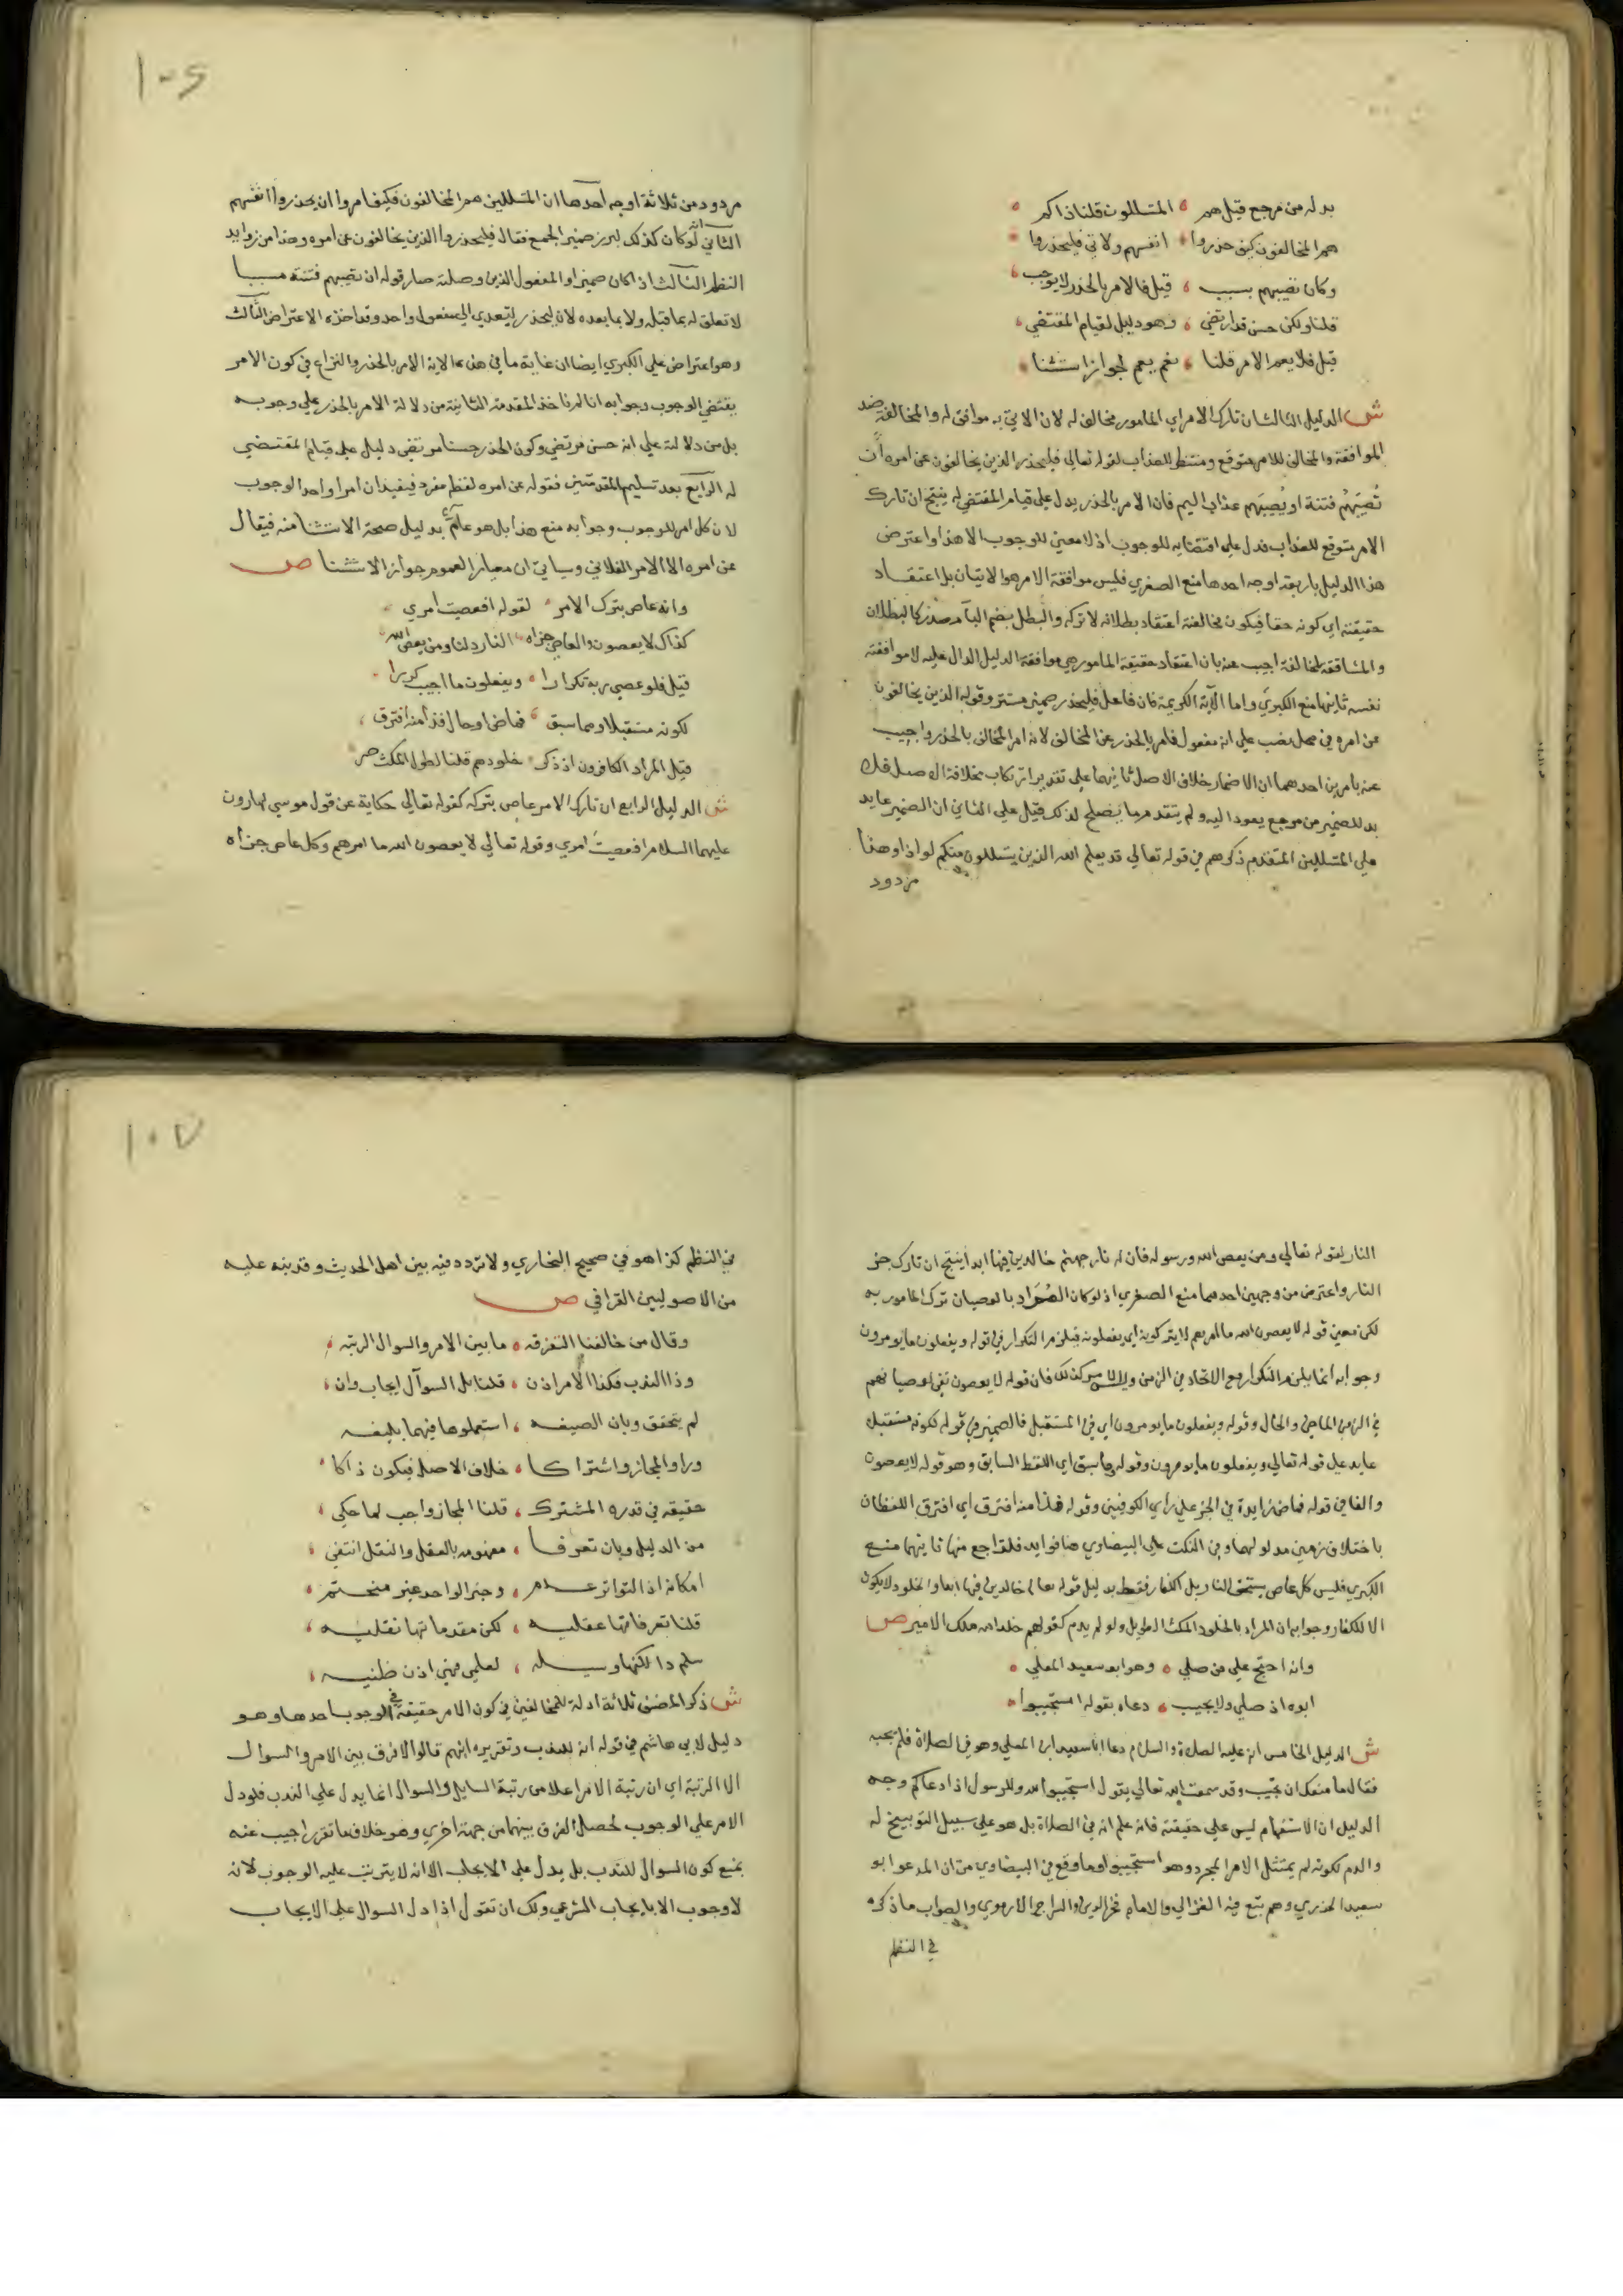 بد له من مرجع قيل هم المتسللون قلنا ذاكم
هم المخالفون كيف حذروا انفسهم ولاتي فليحذروا
وكان تصيبهم بسبب قيل فالامر بالحذر لا يوجب
قلنا ولكن حسن قد ارتضي وهو دليل لقيام المقتضي
قيل فلا يعم الامر قلنا نعم يعم لجواز استثنا
ش الدليل الثالث ان تارك الامر اي المامور مخالف له لان الاتي به موافق له والمخالفة ضد
الموافقة والمخالف للامر متوقع ومنتظر للعذاب لقوله تعالى فليحذر الذين يخالفون عن امره ان
تُصيبَهُم فتنة او يُصيبَهم عذاب اليم فان الامر بالحذر يدل على قيام المقتضي له ينتج ان تارك
الامر متوقع للعذاب فدل على اقتضايه للوجوب اذ لا معنى للوجوب الا هذا واعترض
هذا الدليل باربعة اوجه احدها منع الصغرى فليس موافقة الامر هو الاتيان بل اعتقاد
حقيقته اي كونه حقا فيكون مخالفته اعتقاد بطلانه لا تركه والبطل بضم البآ مصدر كالبطلان
والمشاققة المخالفة اجيب عنه بان اعتقاد حقيقة المامور هي موافقة الدليل الدال عليه لا موافقته
نفسه ثانيها منع الكبري واما الآية الكريمة فان فاعل فليحذر ضمير مستتر وقوله الذين يخالفون
عن امره في محل نصب على انه مفعول فامر بالحذر عن المخالف لا انه امر المخالف بالحذر واجيب
عنه بامرين احدهما ان الاضمار خلاف الاصل ثانيهما على تقدير ارتكاب مخالفة الاصل فلا
بد للضمير من مرجع يعود اليه ولم يتقدم ما يصلح لذلك قيل على الثاني ان الضمير عايد
على المتسللين المتقدم ذكرهم في قوله تعالى قد يعلم الله الذين يتسللون منكم لواذا وهذا
مردود
١٠٦
مردود من ثلاثة اوجه احدها ان المتسللين هم المخالفون فكيف امروا ان يحذروا انفسهم
الثاني لو كان كذلك لبرز ضمير الجمع فقال فليحذروا الذين يخالفون عن امره وهذا من زوايد
النظم الثالث اذا كان ضميرا والمفعول الذين وصلته صار قوله ان تصيبهم فتنة مسببا
لا تعلق له بما قبله ولا بما بعده لان ليحذر يتعدي الي مفعول واحد وقد اخذه الاعتراض الثالث
وهو اعتراض على الكبرى ايضا ان غاية ما في هذه الاية الامر بالحذر والنزاع في كون الامر
يقتضي الوجوب وجوابه انا لم ناخذ المقدمة الثانية من دلالة الامر بالحذر على وجوبه
بل من دلالته علي انه حسن مرتضي وكون الحذر حسنا مرتضى دليل على قيام المقتضي
له الرابع بعد تسليم المقدمتين فقوله عن امره لفظ مفرد فيفيد ان امرا واحدا للوجوب
لا ان كل امر للوجوب وجوابه منع هذا بل هو عامٌّ بدليل صحة الاستثنا منه فيقال
عن امره الا الامر الفلاني وسياتي ان معيار العموم جواز الاستثنا ص
وانه عاص بترك الامر لقوله افعصيت امري
كذاك لا يعصون والعاصي جزاه النار دلنا ومن يعص الله
قيل فلو عصي ربه تكرارا ويفعلون ما اجيب كررا
لكونه مستقبلا وما سبق فماض او حال فذا منه افترق
قيل المراد الكافرون اذ ذكر خلودهم قلنا لطول المكث صر
ش الدليل الرابع ان تارك الامر عاص بتركه كقوله تعالى حكاية عن قول موسي لهارون
عليهما السلام افعصيت امري وقوله تعالى لا يعصون الله ما امرهم وكل عاص جزاه
النار لقوله تعالي ومن يعص الله ورسوله فان له نار جهنم خالدين فيها ابدا ينتج ان تارك جز
النار واعترض من وجهين احدهما منع الصغري اذ لو كان المُراد بالعصيان ترك المامور به
لكن معنى قوله لا يعصون الله ما امرهم لا يتركونه اي يفعلونه فيلزم التكرار في قوله ويفعلون ما يومرون
وجوابه انما يلزم التكرار مع الاتحاد في الزمن وليس كذلك فان قوله لا يعصون نفي لعصيانهم
في الزمن الماضي والحال وقوله ويفعلون ما يومرون اي في المستقبل فالضمير في قوله لكونه مستقبلا
عايد على قوله تعالى ويفعلون ما يومرون وقوله وما سبق اي اللفظ السابق وهو قوله لا يعصون
والفا في قوله فماض زايدة في الخبر على راي الكوفيين وقوله فذا منه افترق اي افترق اللفظان
باختلاف زمن مدلولهما وفي النكت على البيضاوي هنا فوايد فلتراجع منها ثانيهما منع
الكبري فليس كل عاص يستحق النار بل الكفار فقط بدليل قوله تعالى خالدين فيها ابدا والخلود لا يكون
الا للكفار وجوابه ان المراد بالخلود المكث الطويل ولو لم يدم كقولهم خلد الله ملك الامير ص
وانه احتج علي من صلي وهو ابو سعيد المعلي
ابوه اذ صلي ولا يجيب دعاه بقوله استجيبوا
ش الدليل الخامس انه عليه الصلاة والسلام دعا ابا سعيد ابن المعلي وهو في الصلاة فلم يجبه
فقال ما منعك ان تجيب وقد سمعت الله تعالى يقول استجيبوا لله وللرسول اذا دعاكم وجه
الدليل ان الاستفهام ليس على حقيقته فانه علم انه في الصلاة بل هو على سبيل التوبيخ له
والذم لكونه لم يمتثل الامر المجرد وهو استجيبوا وما وقع في البيضاوي من ان المدعو ابو
سعيد الخدري وهم تبع فيه الغزالي والامام فخر الدين والسراج الارموي والصواب ما ذكره
في النظم
١٠٧
في النظم كذا هو في صحيح البخاري ولا تردد فيه بين اهل الحديث وقد نبه عليه
من الاصوليين القرافي ص
وقال من خالفنا التفرقه ما بين الامر والسوال الرتبه
وذا الندب فكذا الامر اذن قلنا بل السوآل ايجاب وان
لم يتحقق وبان الصيغه استعملوها فيهما بليغه
ورا والمجاز واشتراكا خلاف الاصل فيكون ذاكا
حقيقة في قدره المشترك قلنا المجاز واجب لما حكي
من الدليل وبان تعرفا مفهومه بالعقل والنقل انتفي
امكانه اذا التواتر عدم وخبر الواحد غير منحتم
قلنا تعرفاتها عقليه لكن مقدماتها نقليه
سلم ذا لكنها وسيله لعلمي فهي اذن ظنيه
ش ذكر المصنف ثلاثة ادلة للمخالفين في كون الامر حقيقة في الوجوب احدها وهو
دليل لابي هاشم في قوله انه للندب وتقريره انهم قالوا لا فرق بين الامر والسوال
الا الرتبة اي ان رتبة الامر اعلا من رتبة السايل والسوال انما يدل علي الندب فلو دل
الامر علي الوجوب لحصل الفرق بينهما من جهة اخري وهو خلاف ما تقرر اجيب عنه
بمنع كون السوال للندب بل يدل على الايجاب الا انه لا يترتب عليه الوجوب لانه
لا وجوب الا بايجاب الشرعي ولك ان تقول اذا دل السوال على الايجاب